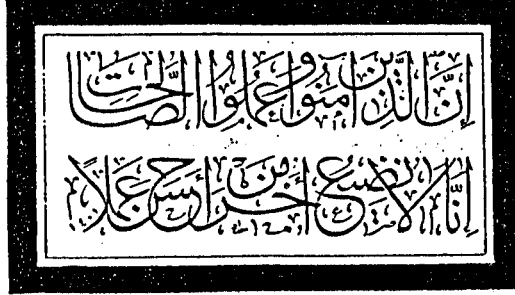 إِنَّ الَّذِينَ آمَنُوا وَعَمِلُوا الصَّالِحَاتِ
إِنَّا لَا نُضِيعُ أَجْرَ مَنْ أَحْسَنَ عَمَلًا